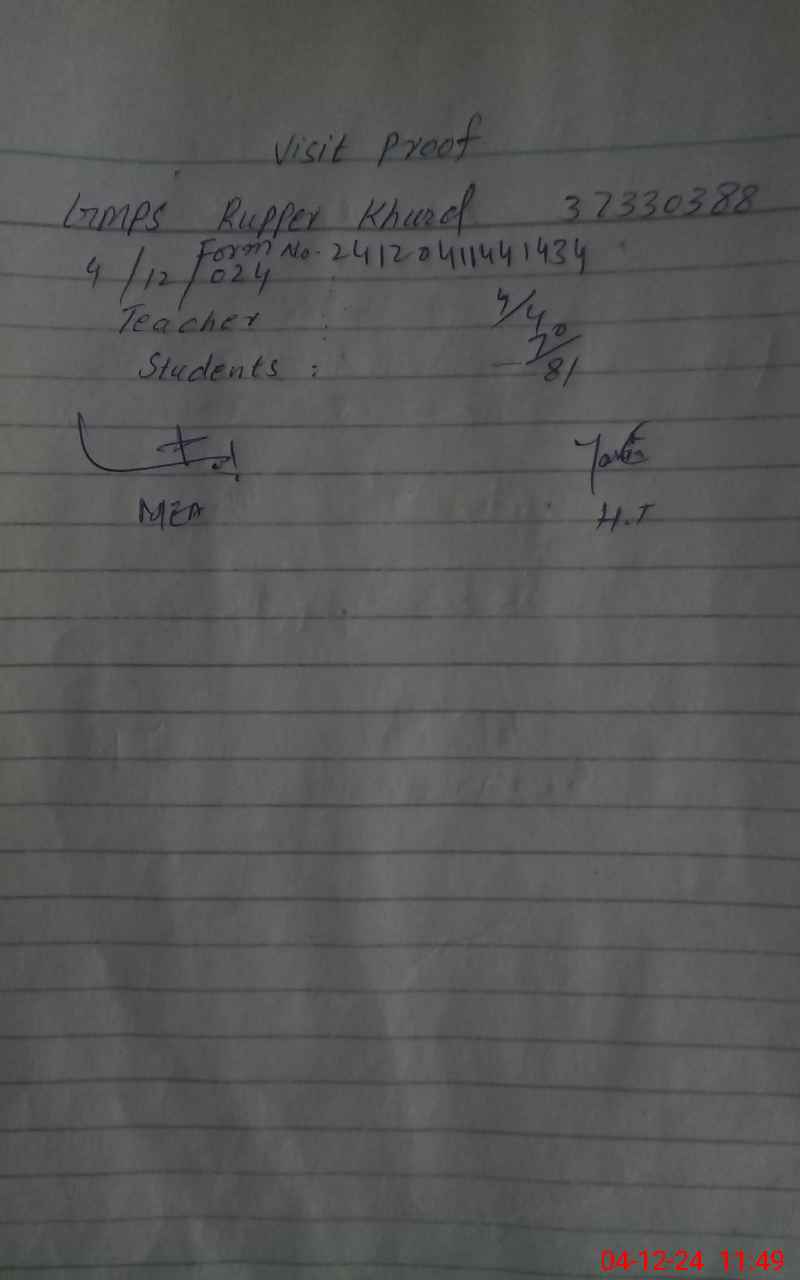 Visit Proof
GMPS Rupper Khurd 37330388
Form No. 24120411441434
4/12/024
Teacher : 4/4
Students : 70/81
MEA H.T
04-12-24 11:49